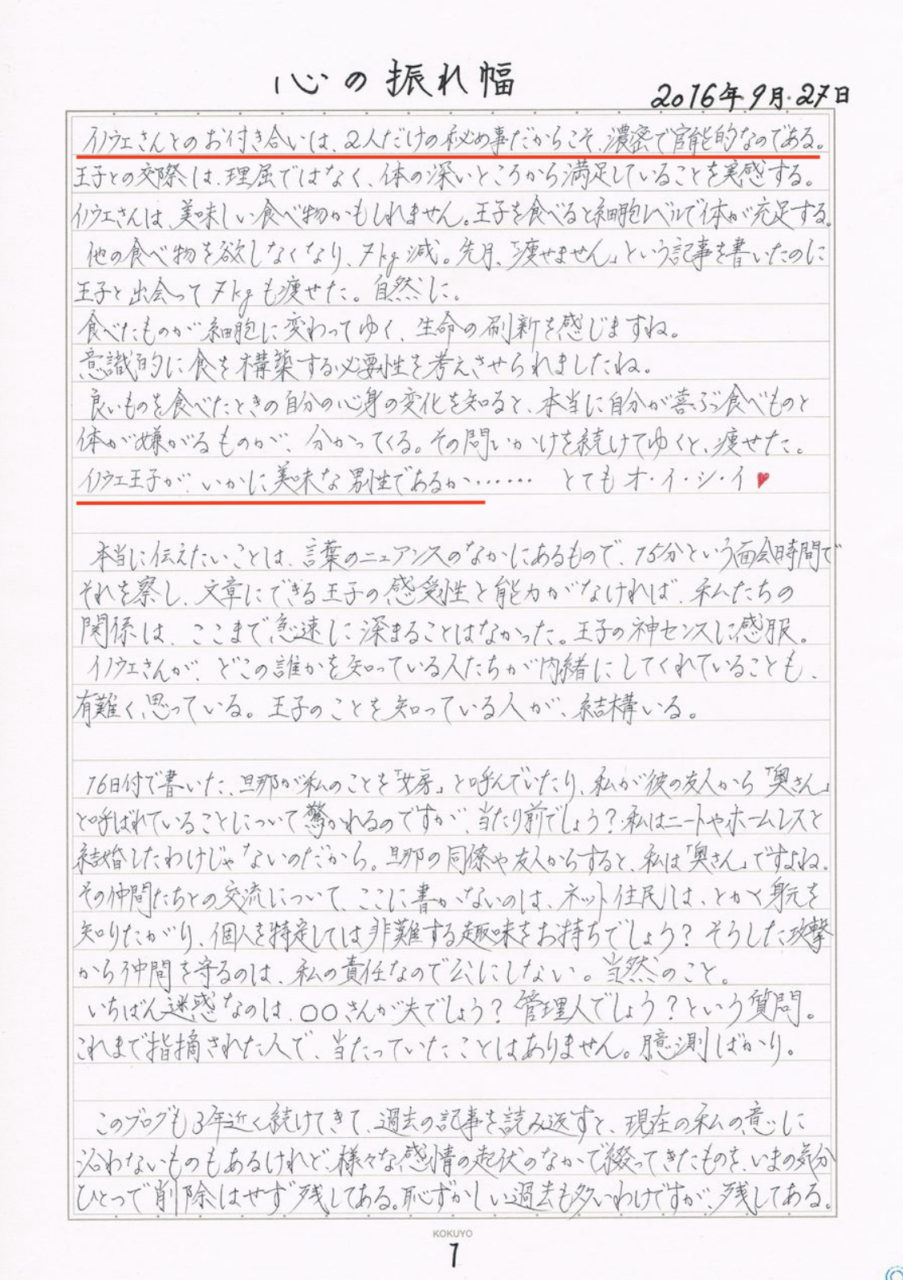 心の振れ幅
2016年9月27日
イノウエさんとのお付き合いは、2人だけの秘め事だからこそ、濃密で官能的なのである。
王子との交際は、理屈ではなく、体の深いところから満足していることを実感する。
イノウエさんは、美味しい食べ物かもしれません。王子を食べると細胞レベルで体が充足する。
他の食べ物を欲しなくなり、7kg減。先月、「痩せません」という記事を書いたのに
王子と出会って7kgも痩せた。自然に。
食べたものが細胞に変わってゆく、生命の刷新を感じますね。
意識的に食を構築する必要性を考えさせられましたね。
良いものを食べたときの自分の心身の変化を知ると、本当に自分が喜ぶ食べものと
体が嫌がるものが、分かってくる。その問いかけを続けてゆくと、痩せた。
イノウエ王子が、いかに美味な男性であるか…… とてもオ・イ・シ・イ♥
本当に伝えたいことは、言葉のニュアンスのなかにあるもので、15分という面会時間で
それを察し、文章にできる王子の感受性と能力がなければ、私たちの
関係は、ここまで急速に深まることはなかった。王子の神センスに感服。
イノウエさんが、どこの誰かを知っている人たちが内緒にしてくれていることも、
有難く思っている。王子のことを知っている人が、結構いる。
16日付で書いた、旦那が私のことを「女房」と呼んでいたり、私が彼の友人から「奥さん」
と呼ばれていることについて驚かれるのですが、当たり前でしょう?私はニートやホームレスと
結婚したわけじゃないのだから。旦那の同僚や友人からすると、私は「奥さん」ですよね。
その仲間たちとの交流について、ここに書かないのは、ネット住民は、とかく身元を
知りたがり、個人を特定しては非難する趣味をお持ちでしょう?そうした攻撃
から仲間を守るのは、私の責任なので公にしない。当然のこと。
いちばん迷惑なのは、○○さんが夫でしょう?管理人でしょう?という質問。
これまで指摘された人で、当たっていたことはありません。臆測ばかり。
このブログも3年近く続けてきて、過去の記事を読み返すと、現在の私の意に
沿わないものもあるけれど、様々な感情の起伏のなかで綴ってきたものを、いまの気分
ひとつで削除はせず残してある。恥ずかしい過去も多いわけですが、残してある。
KOKUYO
1